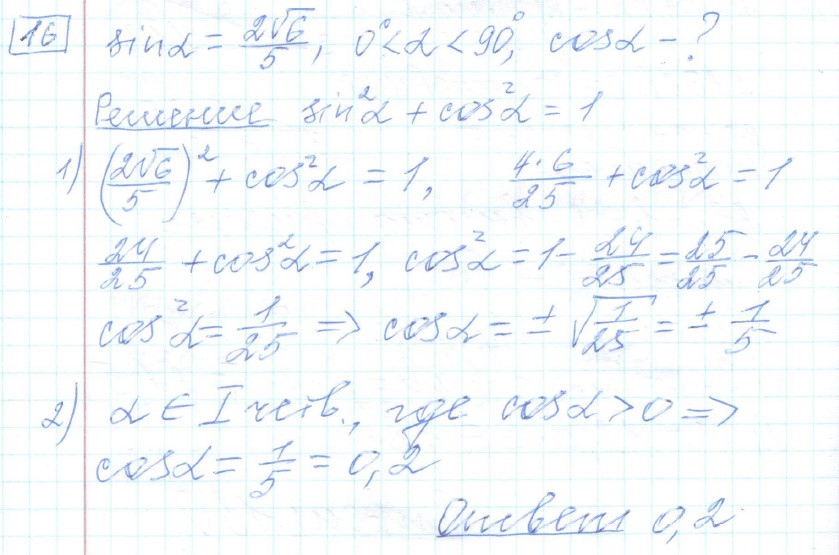 16 sinα = 2√6/5, 0°<α<90°, cosα - ?
Решение sin²α + cos²α = 1
1) (2√6/5)² + cos²α = 1, 4·6/25 + cos²α = 1
24/25 + cos²α = 1, cos²α = 1 - 24/25 = 25/25 - 24/25
cos²α = 1/25 => cosα = ± √1/25 = ± 1/5
2) α ∈ I четв., где cosα > 0 =>
cosα = 1/5 = 0,2
Ответ 0,2